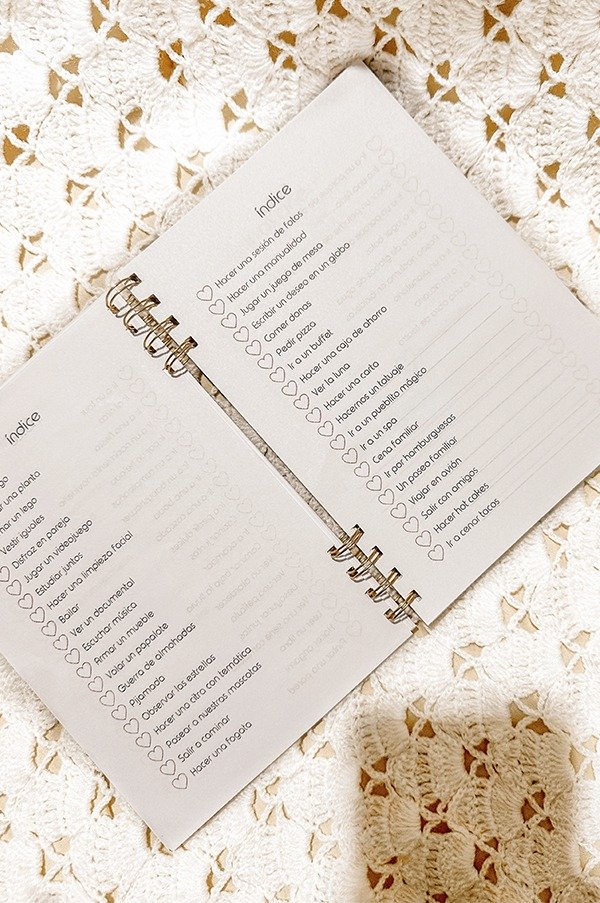 índice
una planta
un lego
Vestir iguales
Disfraz en pareja
Jugar un videojuego
Estudiar juntos
Hacer una limpieza facial
Bailar
Ver un documental
Escuchar música
Armar un mueble
Volar un papalote
Guerra de almohadas
Pijamada
Observar las estrellas
Hacer una citra con temática
Pasear a nuestras mascotas
Salir a caminar
Hacer una fogata
índice
Hacer una sesión de fotos
Hacer una manualidad
Jugar un juego de mesa
Escribir un deseo en un globo
Comer donas
Pedir pizza
Ir a un buffet
Hacer una caja de ahorro
Ver la luna
Hacer una carta
Hacernos un tatuaje
Ir a un pueblito mágico
Ir a un spa
Cena familiar
Ir por hamburguesas
Un paseo familiar
Viajar en avión
Salir con amigos
Hacer hot cakes
Ir a cenar tacos